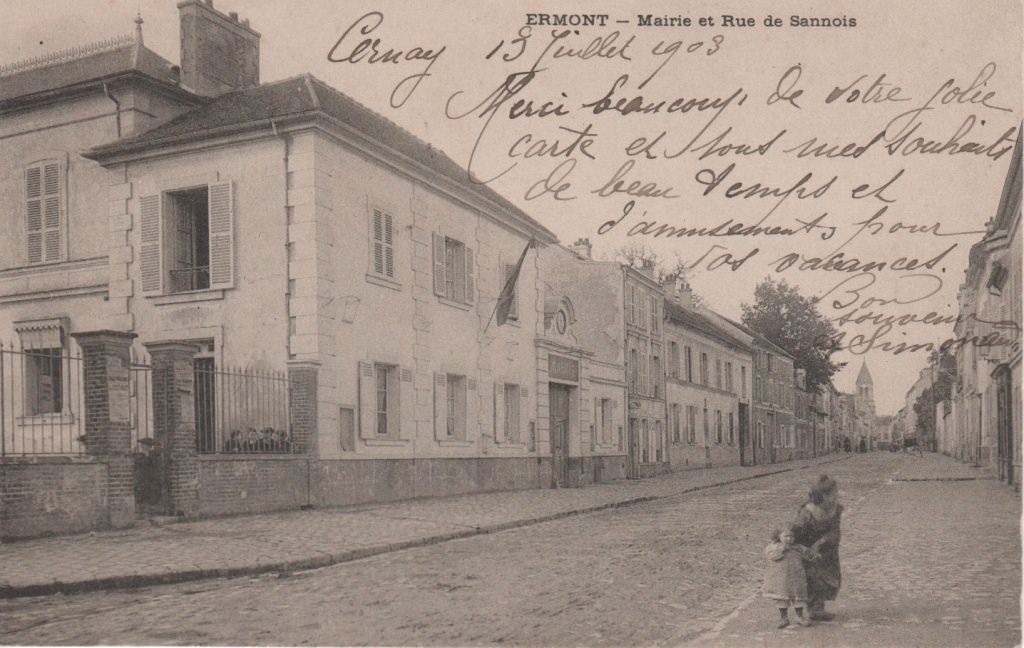 ERMONT — Mairie et Rue de Sannois
Cernay 13 Juillet 1903
Merci beaucoup de votre jolie
carte et tous mes souhaits
de beau temps et
d'amusements pour
vos vacances.
Bon
souvenir
de Simonne